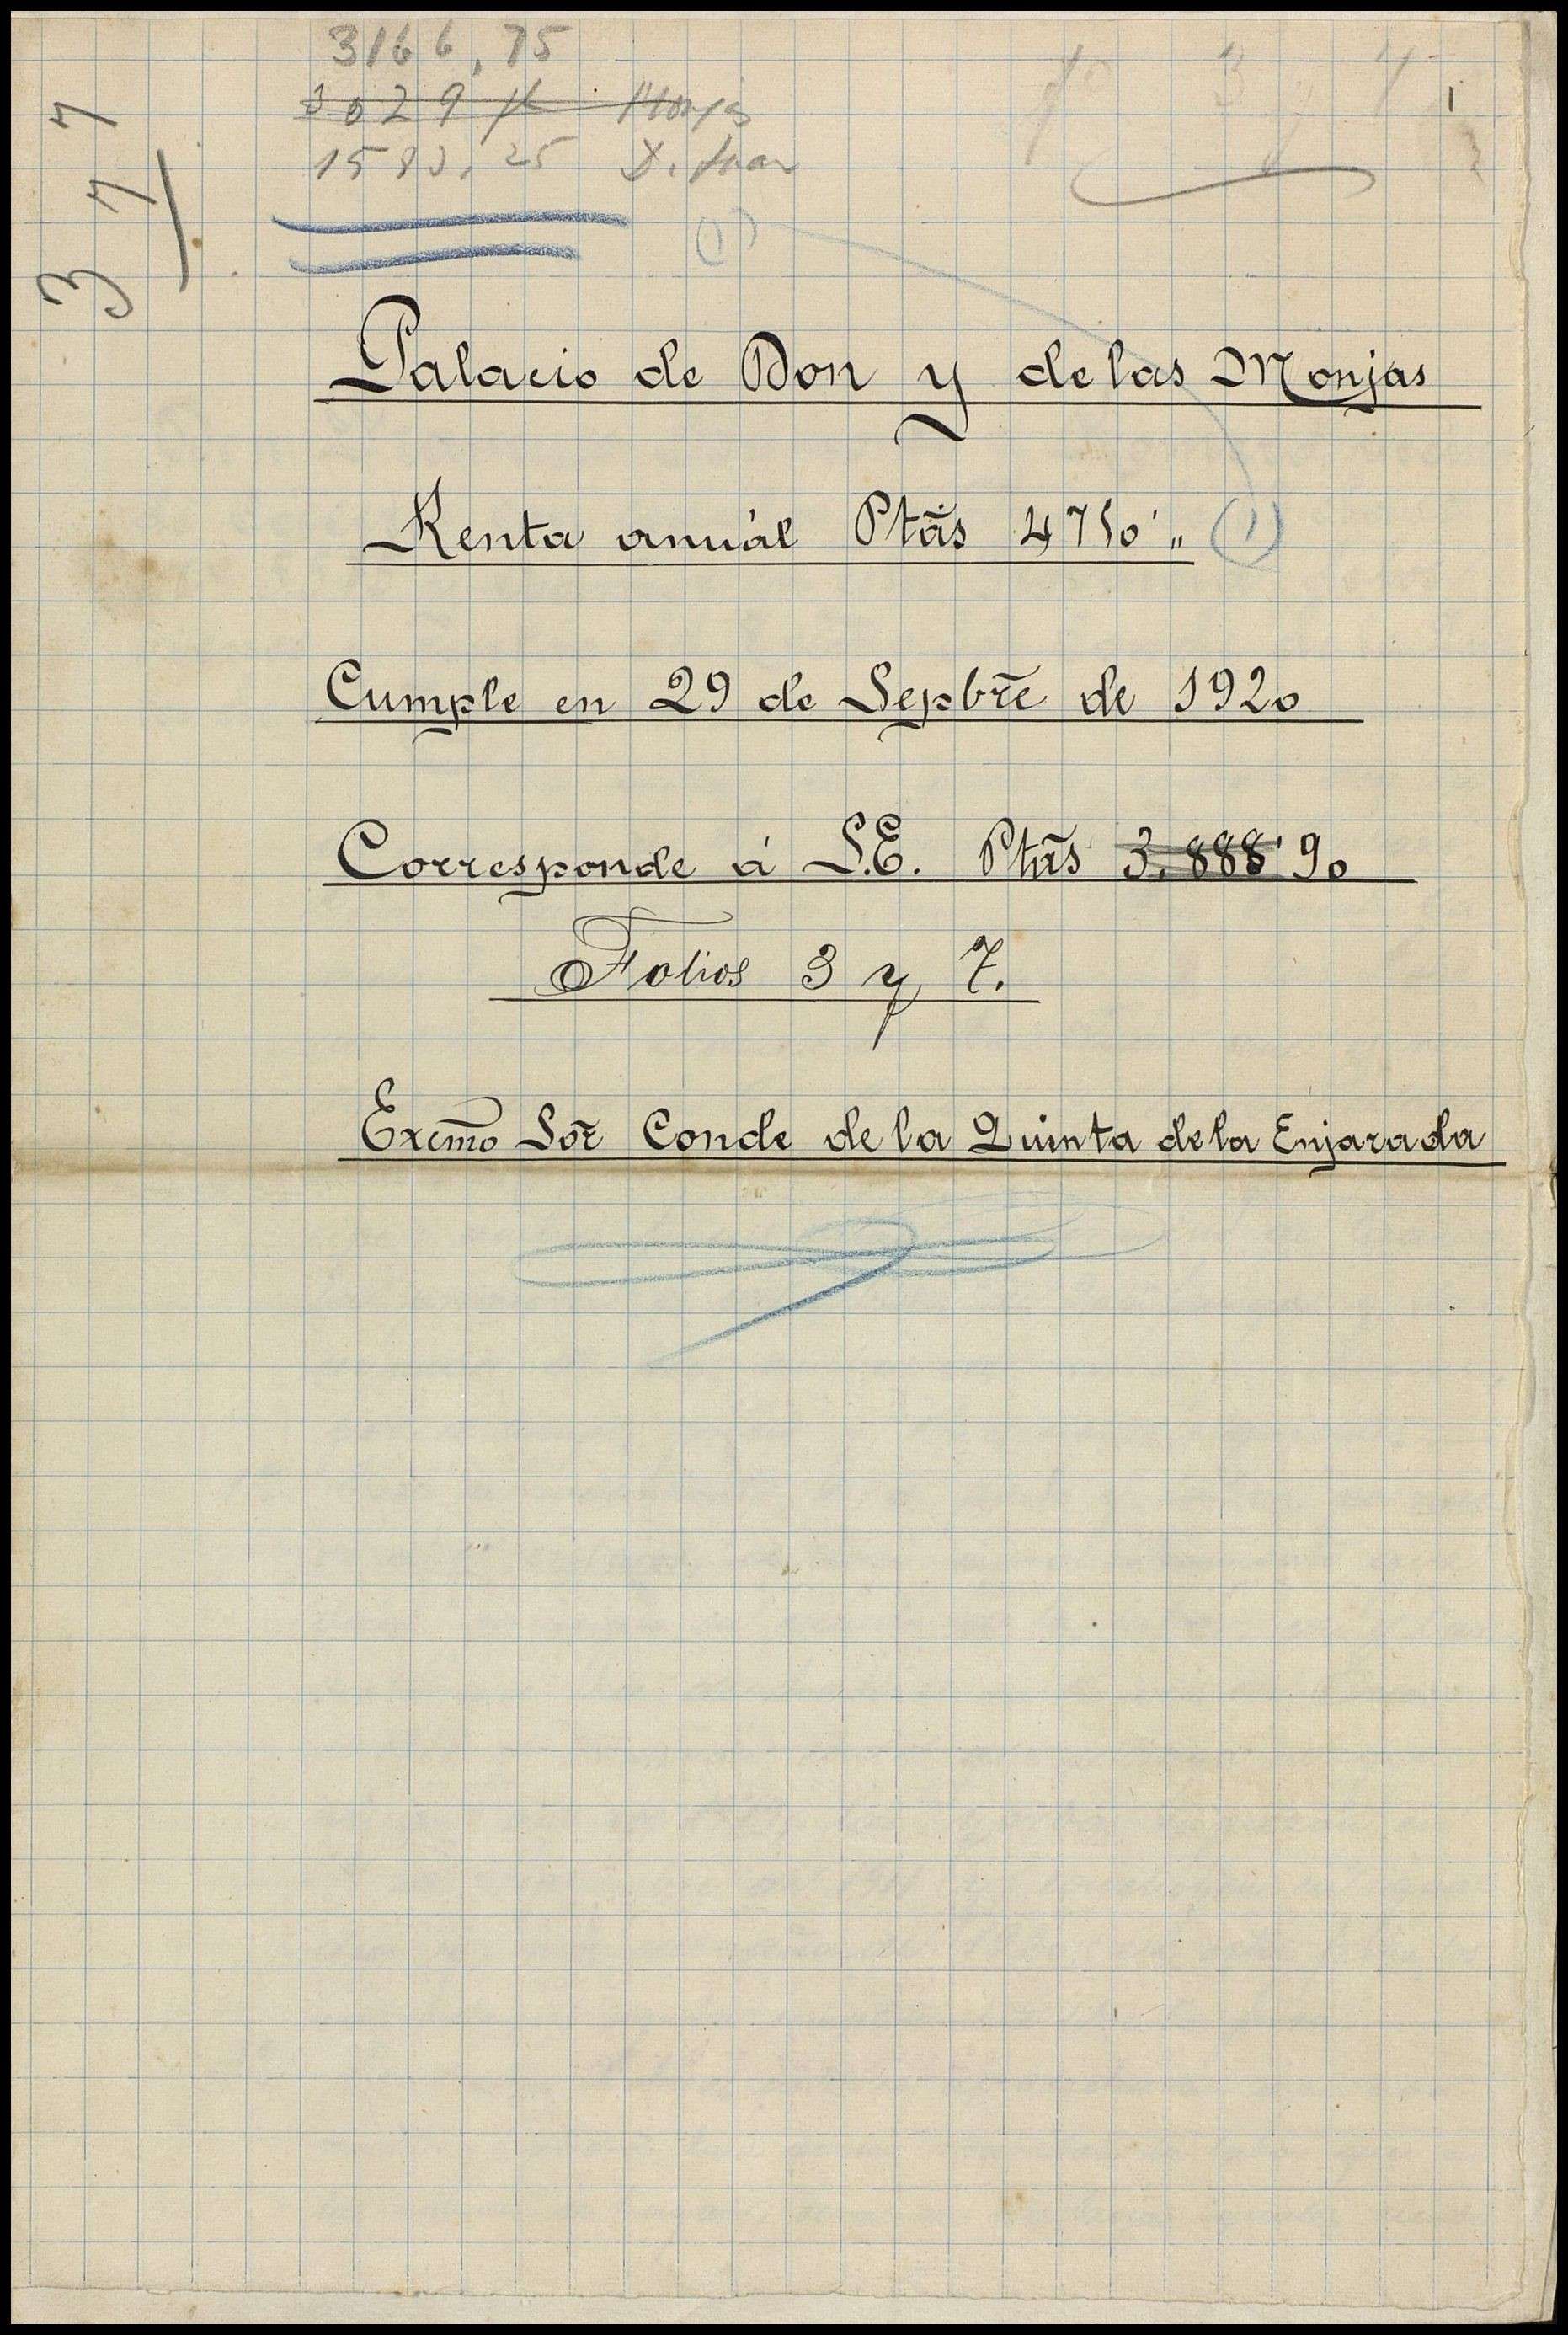 3166,75
3029 Monjas
1583,25 D. Juan
(1)
3 y 7
1
Palacio de Don y de las Monjas
Renta anuál Ptas̃ 4750'„ (1)
Cumple en 29 de Sepbrẽ de 1920
Corresponde á S.E. Ptas̃ 3.888'90
Folios 3 y 7.
Excmõ Sor̃ Conde de la Quinta de la Enjarada